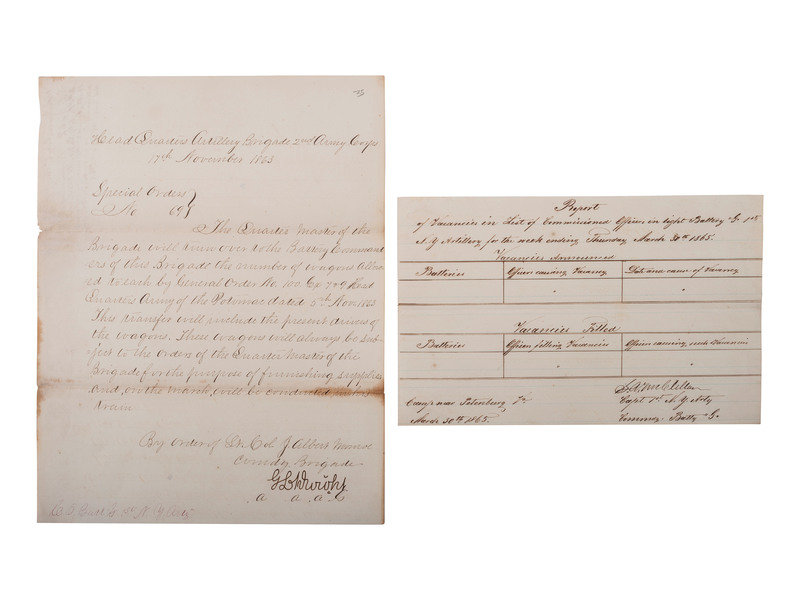 75
Head Quarters Artillery Brigade 2nd Army Corps
17th November 1863
Special Orders
No 69
The Quarter Master of the
Brigade will turn over to the Battery Command
ers of this Brigade the number of wagons Allow
ed to each by General Order No. 100. Head
Quarters Army of the Potomac dated 5th Nov. 1863
This transfer will include the present drivers of
the wagons. These wagons will always be sub-
ject to the orders of the Quarter Master of the
Brigade for the purpose of furnishing supplies
and, on the march, will be conducted in one
train
By order of Lt. Col J Albert Monroe
Comdg Brigade
a a a G
N. Y. Arty
Report
of Vacancies in List of Commissioned Officers in Light Battery G. 1st
N. Y. Artillery for the week ending Thursday March 30th 1865.
Vacancies Announced
Batteries Officers causing Vacancy Date and cause of Vacancy
Vacancies Filled
Batteries Officers filling Vacancies Officers causing such Vacancies
Capt 1st N. Y. Arty
Camp near Petersburg Va
March 30th 1865.
Commdg Batty G.